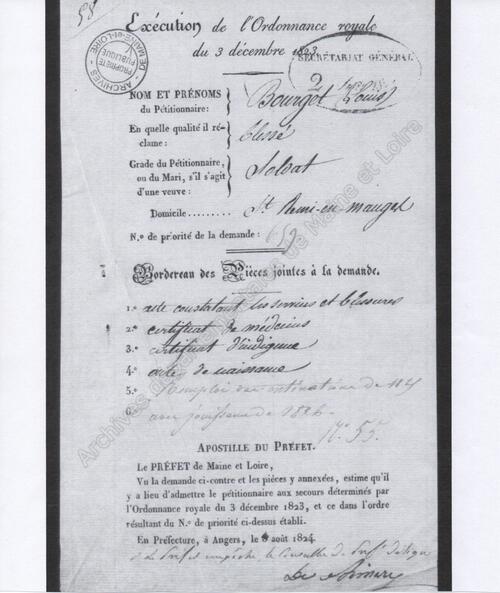 58
Exécution de l'Ordonnance royale
du 3 décembre 1823.
ARCHIVES DE MAINE-et-LOIRE
PROPRIÉTÉ PUBLIQUE
SECRÉTARIAT GÉNÉRAL
2
NOM ET PRÉNOMS du Pétitionnaire: Bourget Louis
En quelle qualité il réclame: blessé
Grade du Pétitionnaire, ou du Mari, s'il s'agit d'une veuve: Soldat
Domicile ........ St Remi-en mauges
N.º de priorité de la demande:
Bordereau des Pièces jointes à la demande.
1.º acte constatant les services et blessures
2.º certificat de médecins
3.º certificat d'indigence
4.º acte de naissance
5.º
6.º avec jouissance de 1824.
Nº 55.
APOSTILLE DU PRÉFET.
Le PRÉFET de Maine et Loire,
Vu la demande ci-contre et les pièces y annexées, estime qu'il
y a lieu d'admettre le pétitionnaire aux secours déterminés par
l'Ordonnance royale du 3 décembre 1823, et ce dans l'ordre
résultant du N.º de priorité ci-dessus établi.
En Préfecture, à Angers, le août 1824.
Le Préfet empêché le Conseiller de Préf. délégué
Archives départementales de Maine et Loire